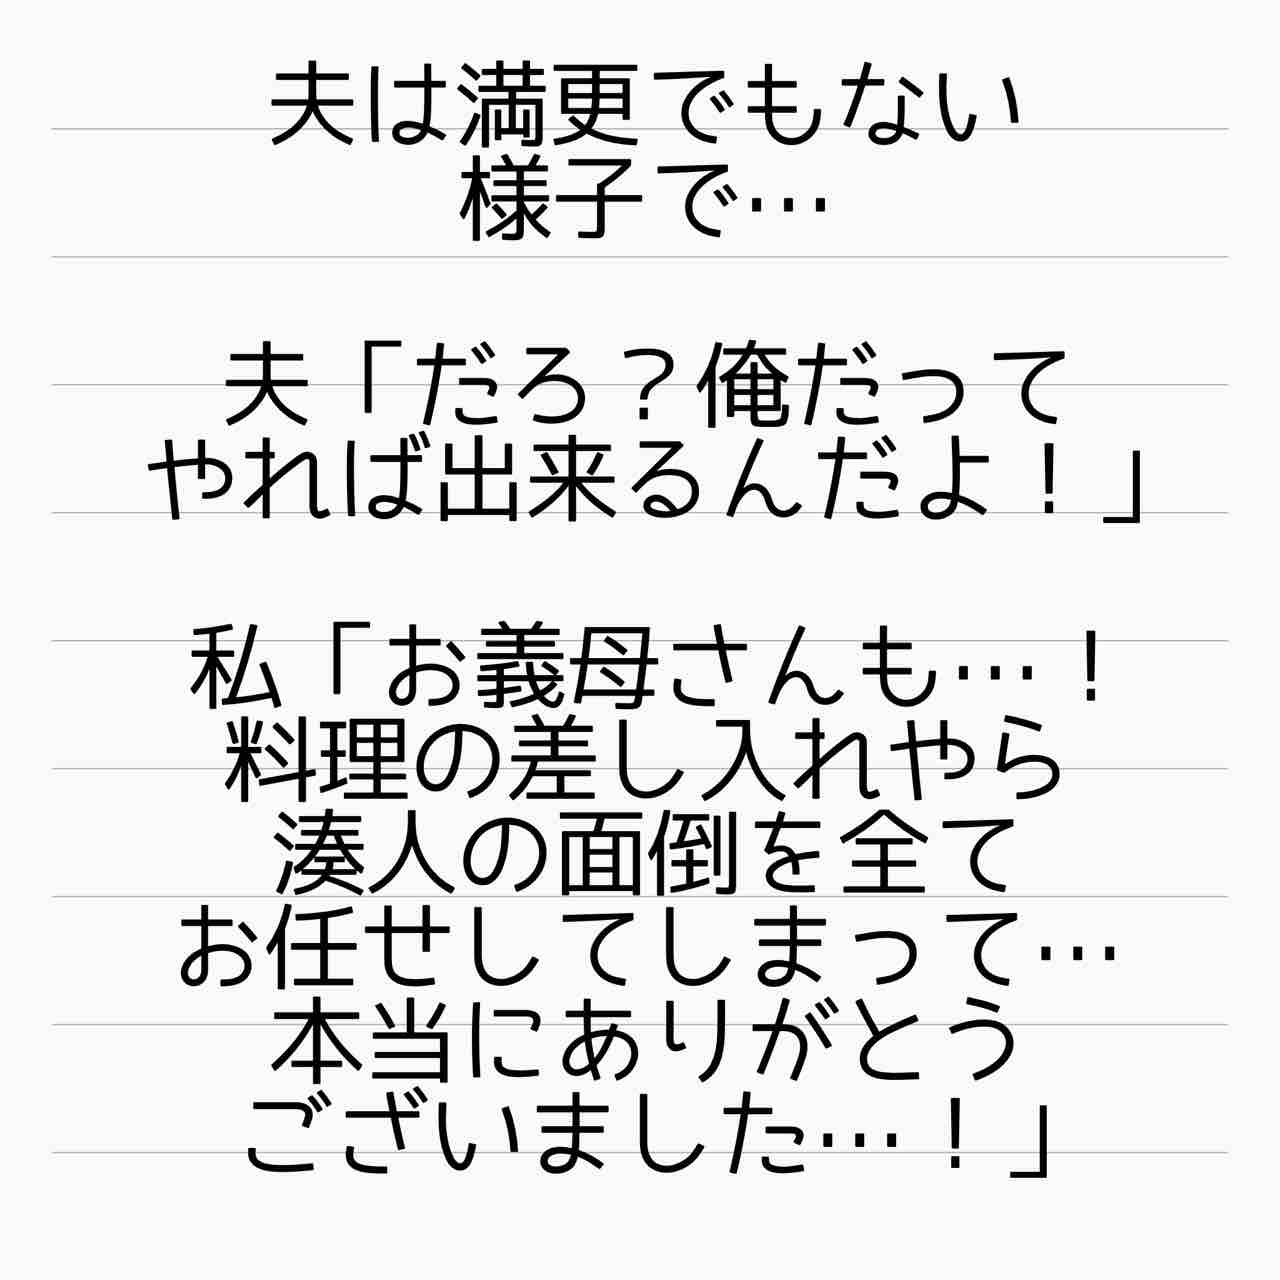 夫は満更でもない
様子で…
夫「だろ？俺だって
やれば出来るんだよ！」
私「お義母さんも…！
料理の差し入れやら
湊人の面倒を全て
お任せしてしまって…
本当にありがとう
ございました…！」